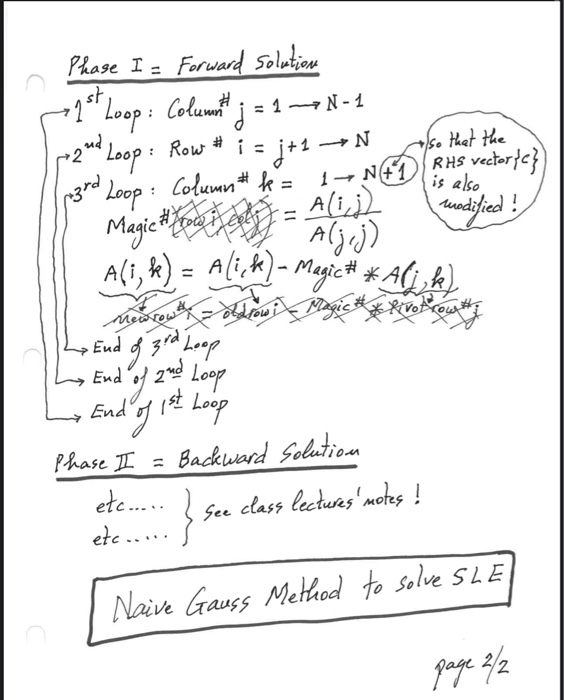 Phase I = Forward Solution
1st Loop: Column# j = 1 → N-1
2nd Loop: Row # i = j+1 → N
3rd Loop: Column# k = 1 → N+1
so that the
RHS vector {c}
is also
modified!
Magic# (row i, col j) = A(i,j) / A(j,j)
A(i,k) = A(i,k) - Magic# * A(j,k)
New row# i = old row i - Magic# * Pivot row# j
End of 3rd Loop
End of 2nd Loop
End of 1st Loop
Phase II = Backward Solution
etc.....
etc.....
See class lectures' notes!
Naive Gauss Method to solve SLE
page 2/2